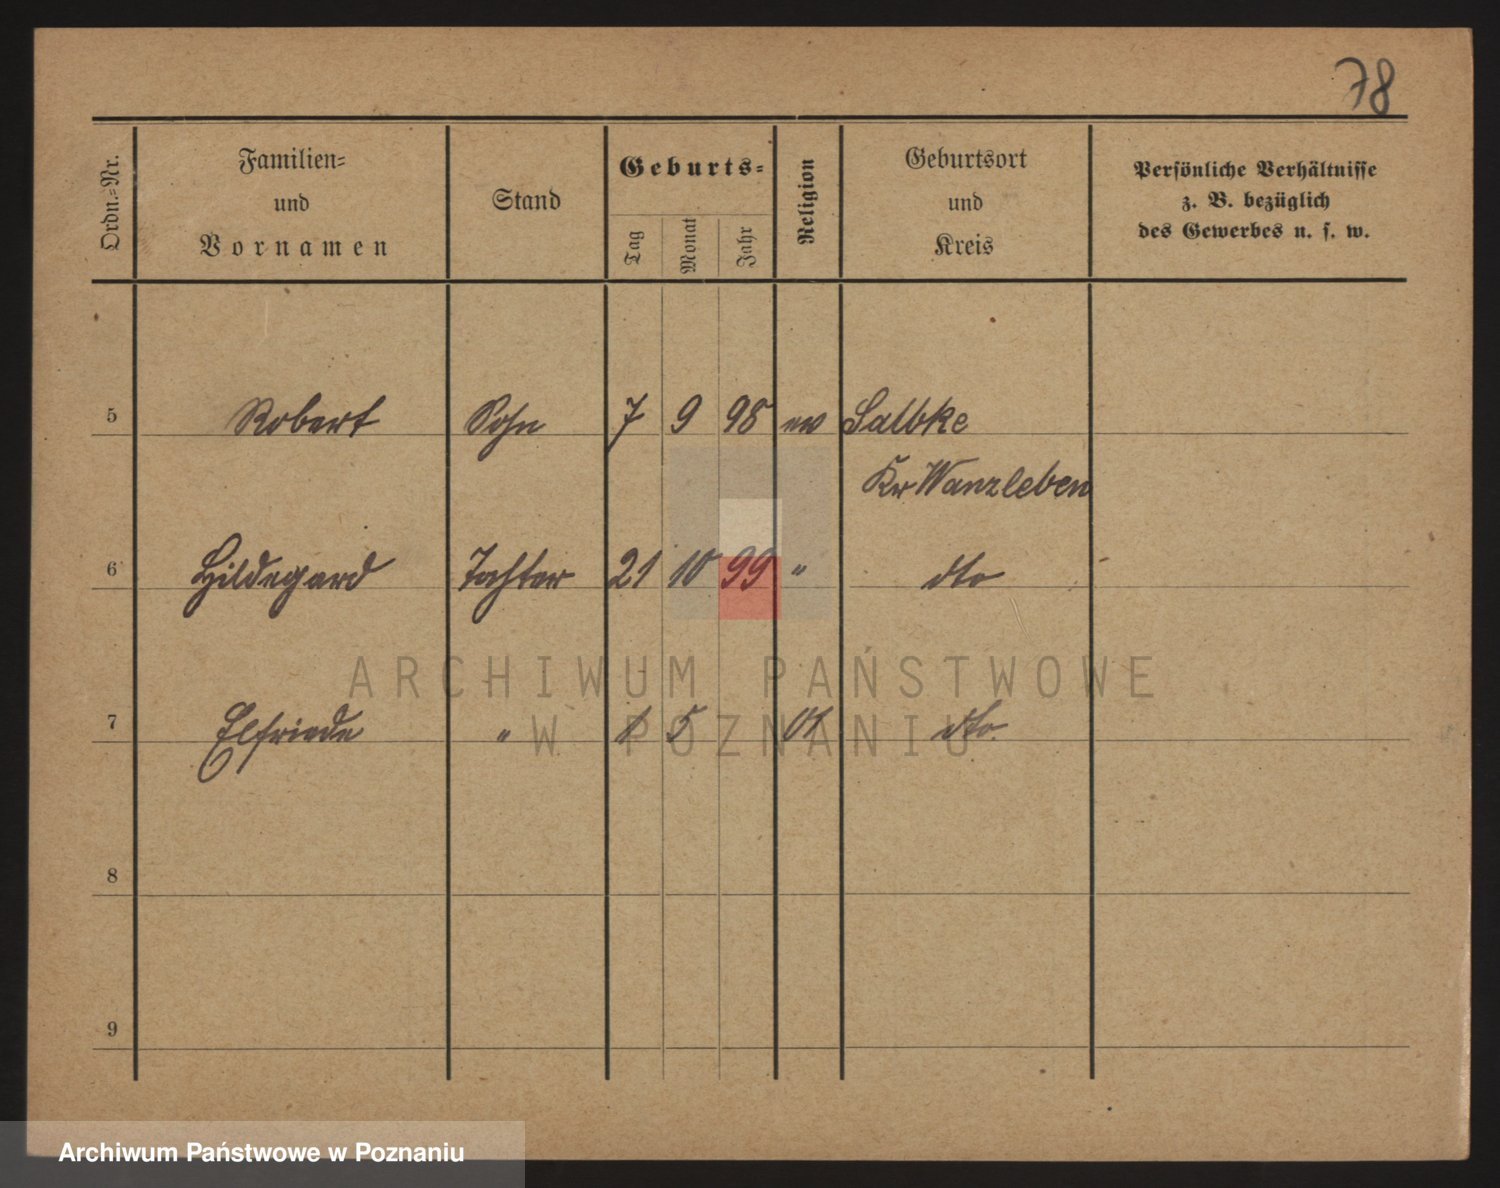 78
Ordn.=Nr.
Familien=
und
Vornamen
Stand
Geburts=
Tag
Monat
Jahr
Religion
Geburtsort
und
Kreis
Persönliche Verhältnisse
z. B. bezüglich
des Gewerbes u. s. w.
5 Robert Sohn 7 9 98 ev Salbke
Kr Wanzleben
6 Hildegard Tochter 21 10 99 " dto
ARCHIWUM PAŃSTWOWE
7 Elfriede " 1 5 01 dto
W POZNANIU
8
9
Archiwum Państwowe w Poznaniu